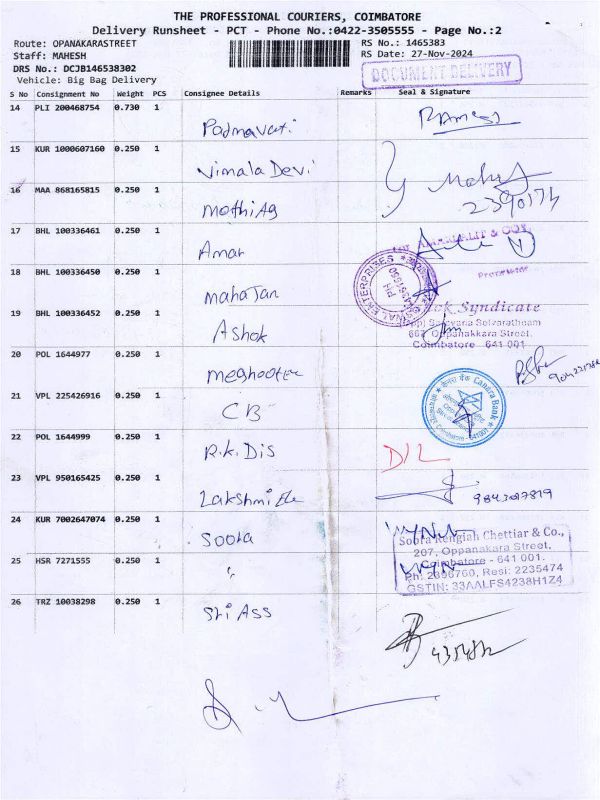 THE PROFESSIONAL COURIERS, COIMBATORE
Delivery Runsheet - PCT - Phone No.:0422-3505555 - Page No.:2
Route: OPANAKARASTREET RS No.: 1465383
Staff: MAHESH RS Date: 27-Nov-2024
DRS No.: DCJB146538302
Vehicle: Big Bag Delivery
DOCUMENT DELIVERY
S No Consignment No Weight PCS Consignee Details Remarks Seal & Signature
14 PLI 200468754 0.730 1 Padmavati RAMESH
15 KUR 1000607160 0.250 1 Vimala Devi
16 MAA 868165815 0.250 1 Mothi Ag
17 BHL 100336461 0.250 1 Amar
18 BHL 100336450 0.250 1 mahaJan
Proprietor
19 BHL 100336452 0.250 1 Ashok
Syndicate
Saravana Selvarathnam
667 Oppanakkara Street,
Coimbatore 641 001
20 POL 1644977 0.250 1
21 VPL 225426916 0.250 1 CB
Canara Bank
22 POL 1644999 0.250 1 R.K. Dis D/L
23 VPL 950165425 0.250 1 Lakshmi Ele 9843027819
24 KUR 7002647074 0.250 1 Soora
Soora Rengiah Chettiar & Co.,
207, Oppanakara Street,
Coimbatore - 641 001.
Ph: 2396760, Resi: 2235474
GSTIN: 33AALFS4238H1Z4
25 HSR 7271555 0.250 1 "
26 TRZ 10038298 0.250 1 Sri Ass